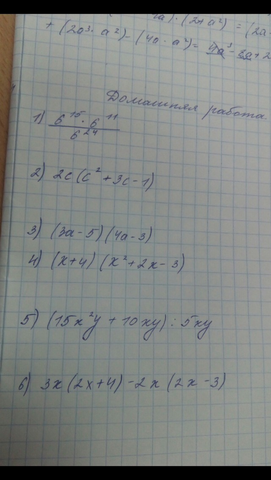 + (2a³ · a²) - (4a · a²) = 4a³ - 8a + 2
Домашняя работа
1) 6¹⁵ · 6¹¹ / 6²⁴
2) 2c (c² + 3c - 1)
3) (3a - 5) (4a - 3)
4) (x + 4) (x² + 2x - 3)
5) (15x²y + 10xy) : 5xy
6) 3x (2x + 4) - 2x (2x - 3)